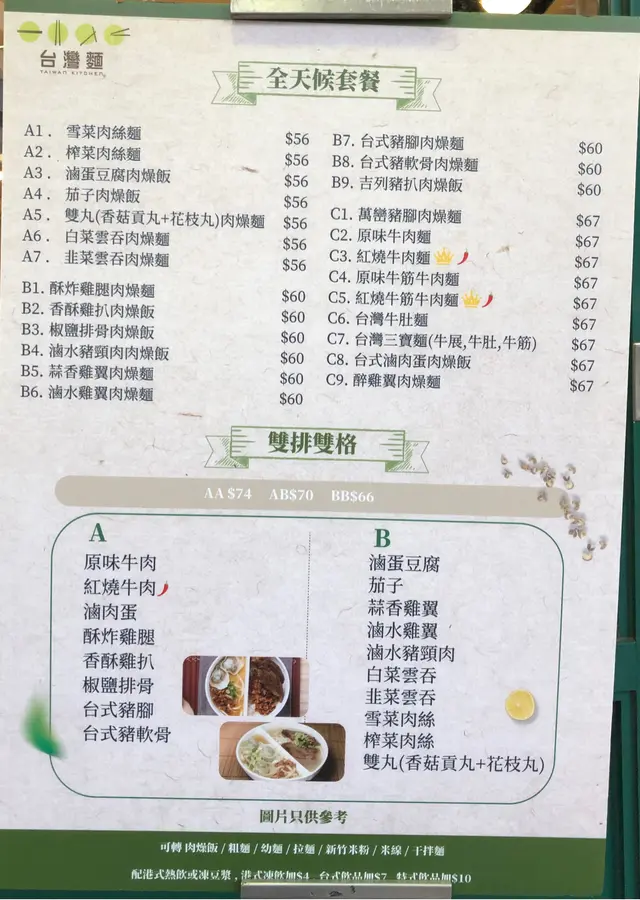 台灣麵
TAIWAN KITCHEN
全天候套餐
A1. 雪菜肉絲麵 $56
A2. 榨菜肉絲麵 $56
A3. 滷蛋豆腐肉燥飯 $56
A4. 茄子肉燥飯 $56
A5. 雙丸(香菇貢丸+花枝丸)肉燥麵 $56
A6. 白菜雲吞肉燥麵 $56
A7. 韭菜雲吞肉燥麵 $56
B1. 酥炸雞腿肉燥麵 $60
B2. 香酥雞扒肉燥飯 $60
B3. 椒鹽排骨肉燥飯 $60
B4. 滷水豬頸肉肉燥飯 $60
B5. 蒜香雞翼肉燥麵 $60
B6. 滷水雞翼肉燥麵 $60
B7. 台式豬腳肉燥麵 $60
B8. 台式豬軟骨肉燥麵 $60
B9. 吉列豬扒肉燥飯 $60
C1. 萬巒豬腳肉燥麵 $67
C2. 原味牛肉麵 $67
C3. 紅燒牛肉麵 $67
C4. 原味牛筋牛肉麵 $67
C5. 紅燒牛筋牛肉麵 $67
C6. 台灣牛肚麵 $67
C7. 台灣三寶麵(牛展,牛肚,牛筋) $67
C8. 台式滷肉蛋肉燥飯 $67
C9. 醉雞翼肉燥麵 $67
雙排雙格
AA $74 AB$70 BB$66
A
原味牛肉
紅燒牛肉
滷肉蛋
酥炸雞腿
香酥雞扒
椒鹽排骨
台式豬腳
台式豬軟骨
B
滷蛋豆腐
茄子
蒜香雞翼
滷水雞翼
滷水豬頸肉
白菜雲吞
韭菜雲吞
雪菜肉絲
榨菜肉絲
雙丸(香菇貢丸+花枝丸)
圖片只供參考
可轉 肉燥飯 / 粗麵 / 幼麵 / 拉麵 / 新竹米粉 / 米線 / 干拌麵
配港式熱飲或凍豆漿 , 港式凍飲加$4 , 台式飲品加$7 , 特式飲品加$10